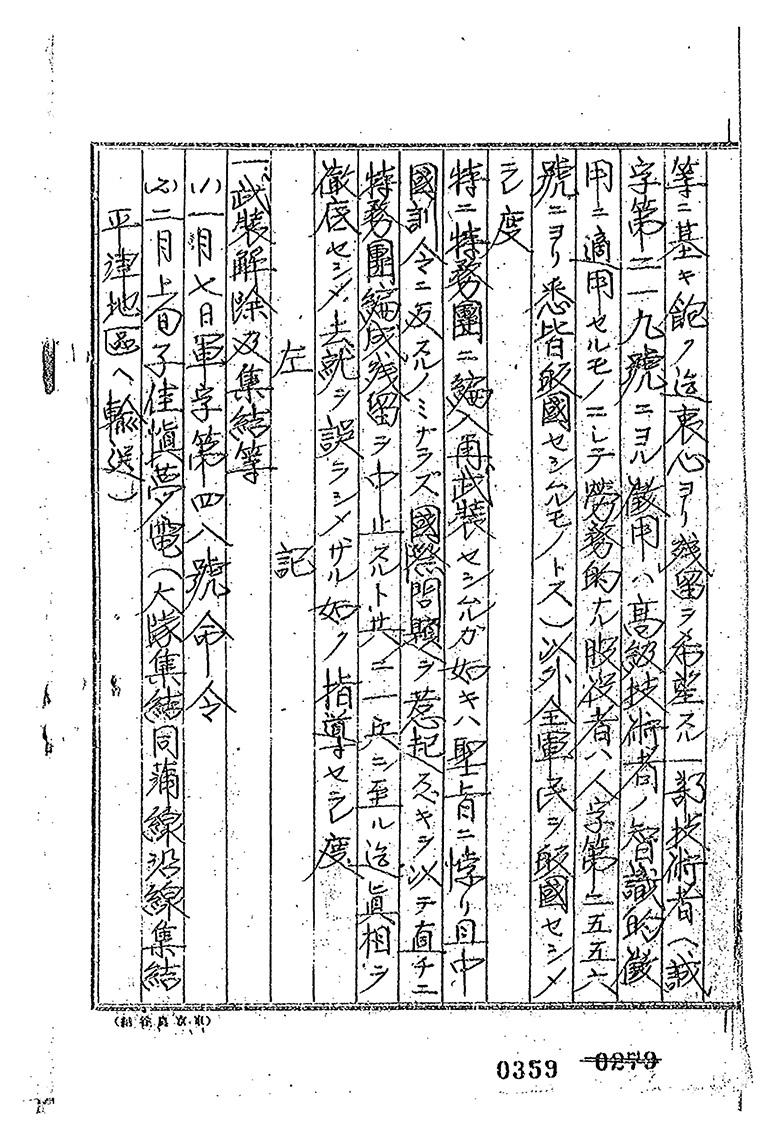 等ニ基キ飽ク迄衷心ヨリ残留ヲ希望スル一部技術者(誠
字第二一九號ニヨル徴用ハ高級技術者ノ智識的徴
用ニ適用セルモノニシテ勞務的ナル服役者ハ人字第二五五六
號ニヨリ悉皆皈國セシムルモノトス)以外全軍民ヲ皈國セシメ
ラレ度
特ニ特務團ニ編入再武装セシムルガ如キハ聖旨ニ悖リ且中
國訓令ニ反スルノミナラズ國際問題ヲ惹起スベキヲ以テ直チニ
特務團編成残留ヲ中止スルト共ニ一兵ニ至ル迄眞相ヲ
徹底セシメ去就ヲ誤ラシメザル如ク指導セラレ度
左記
一、武装解除及集結等
(1)一月七日軍字第四八號命令
(2)二月上旬子佳愼夢電(大隊集結同蒲線沿線集結
平津地區ヘ輸送)
0359 0279